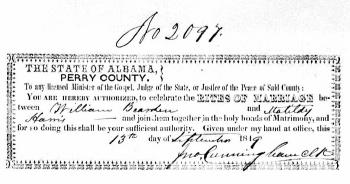 No 2097.
THE STATE OF ALBAMA,
PERRY COUNTY.
To any licensed Minister of the Gospel, Judge of the State, or Justice of the Peace of Said County:
YOU ARE HEREBY AUTHORIZED, to celebrate the RITES OF MARRIAGE be-
tween William Bearden and Matilda
Harris and join them together in the holy bonds of Matrimony, and
for so doing this shall be your sufficient authority. Given under my hand at office, this
13th day of September 1849
Jno Cunningham Clk